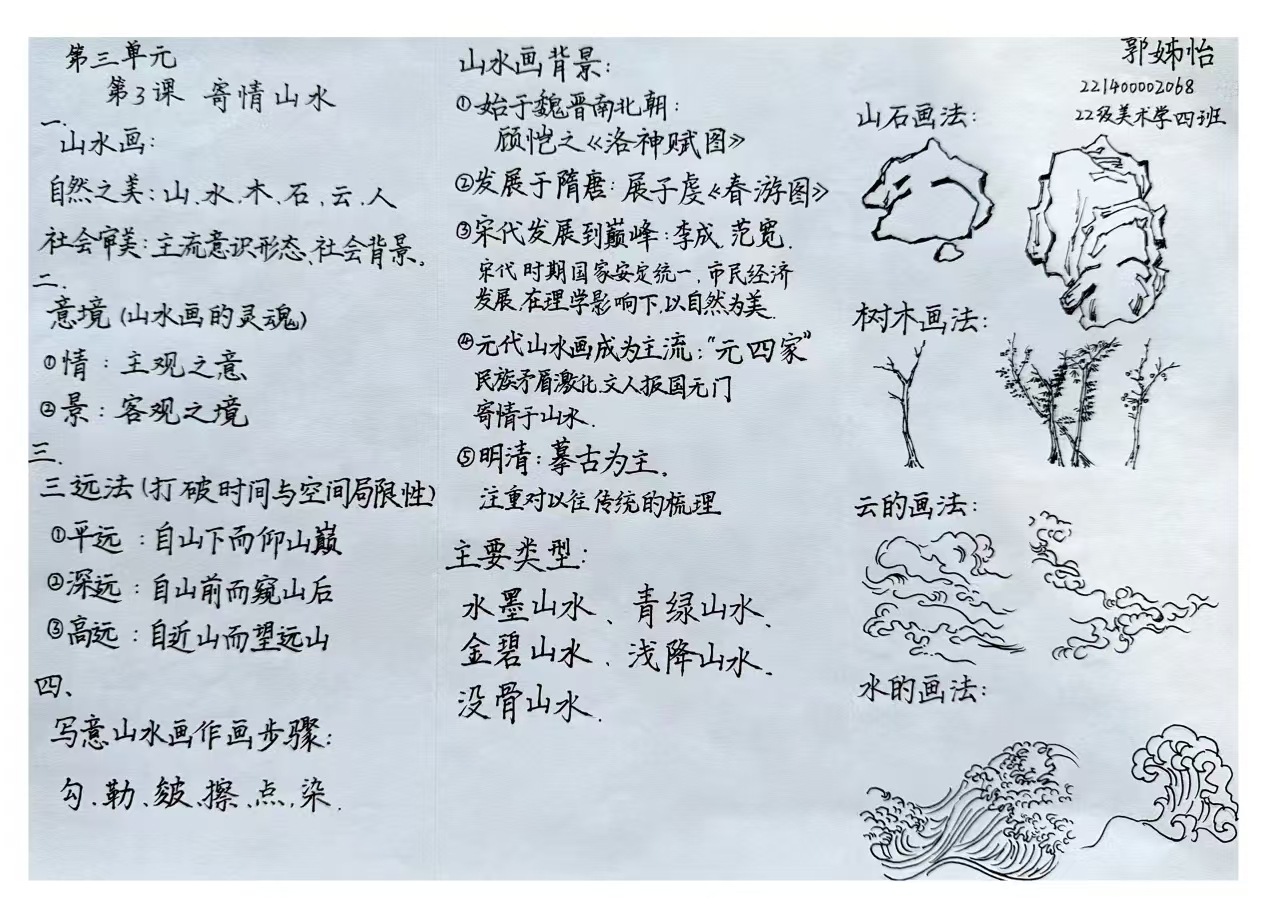 第三单元
第3课 寄情山水
一.
山水画:
自然之美:山、水、木、石、云、人
社会审美:主流意识形态、社会背景。
二.
意境(山水画的灵魂)
①情:主观之意
②景:客观之境
三.
三远法(打破时间与空间局限性)
①平远:自山下而仰山巅
②深远:自山前而窥山后
③高远:自近山而望远山
四、
写意山水画作画步骤:
勾、勒、皴、擦、点、染.
山水画背景:
①始于魏晋南北朝:
顾恺之《洛神赋图》
②发展于隋唐:展子虔《春游图》
③宋代发展到巅峰:李成、范宽.
宋代时期国家安定统一,市民经济
发展,在理学影响下,以自然为美.
④元代山水画成为主流:"元四家"
民族矛盾激化.文人报国无门
寄情于山水.
⑤明清:摹古为主.
注重对以往传统的梳理
主要类型:
水墨山水、青绿山水、
金碧山水、浅降山水、
没骨山水.
郭姊怡
221400002068
22级美术学四班
山石画法:
树木画法:
云的画法:
水的画法: